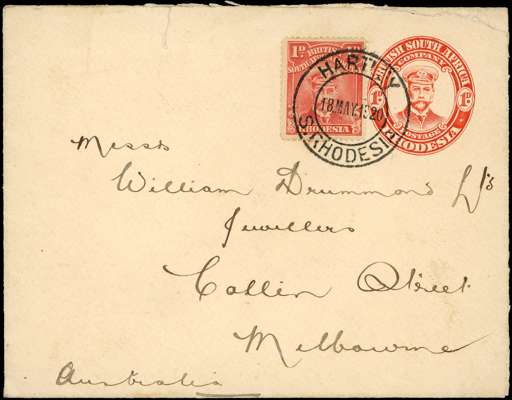 1D BRITISH 1D
SOUTH AFRICA
RHODESIA
HARTLEY
18 MAY 1920
S. RHODESIA
BRITISH SOUTH AFRICA
COMPANY
1D. 1D.
POSTAGE
RHODESIA
Messrs
William Drummond
Jewellers
Collin Street
Melbourne
Australia